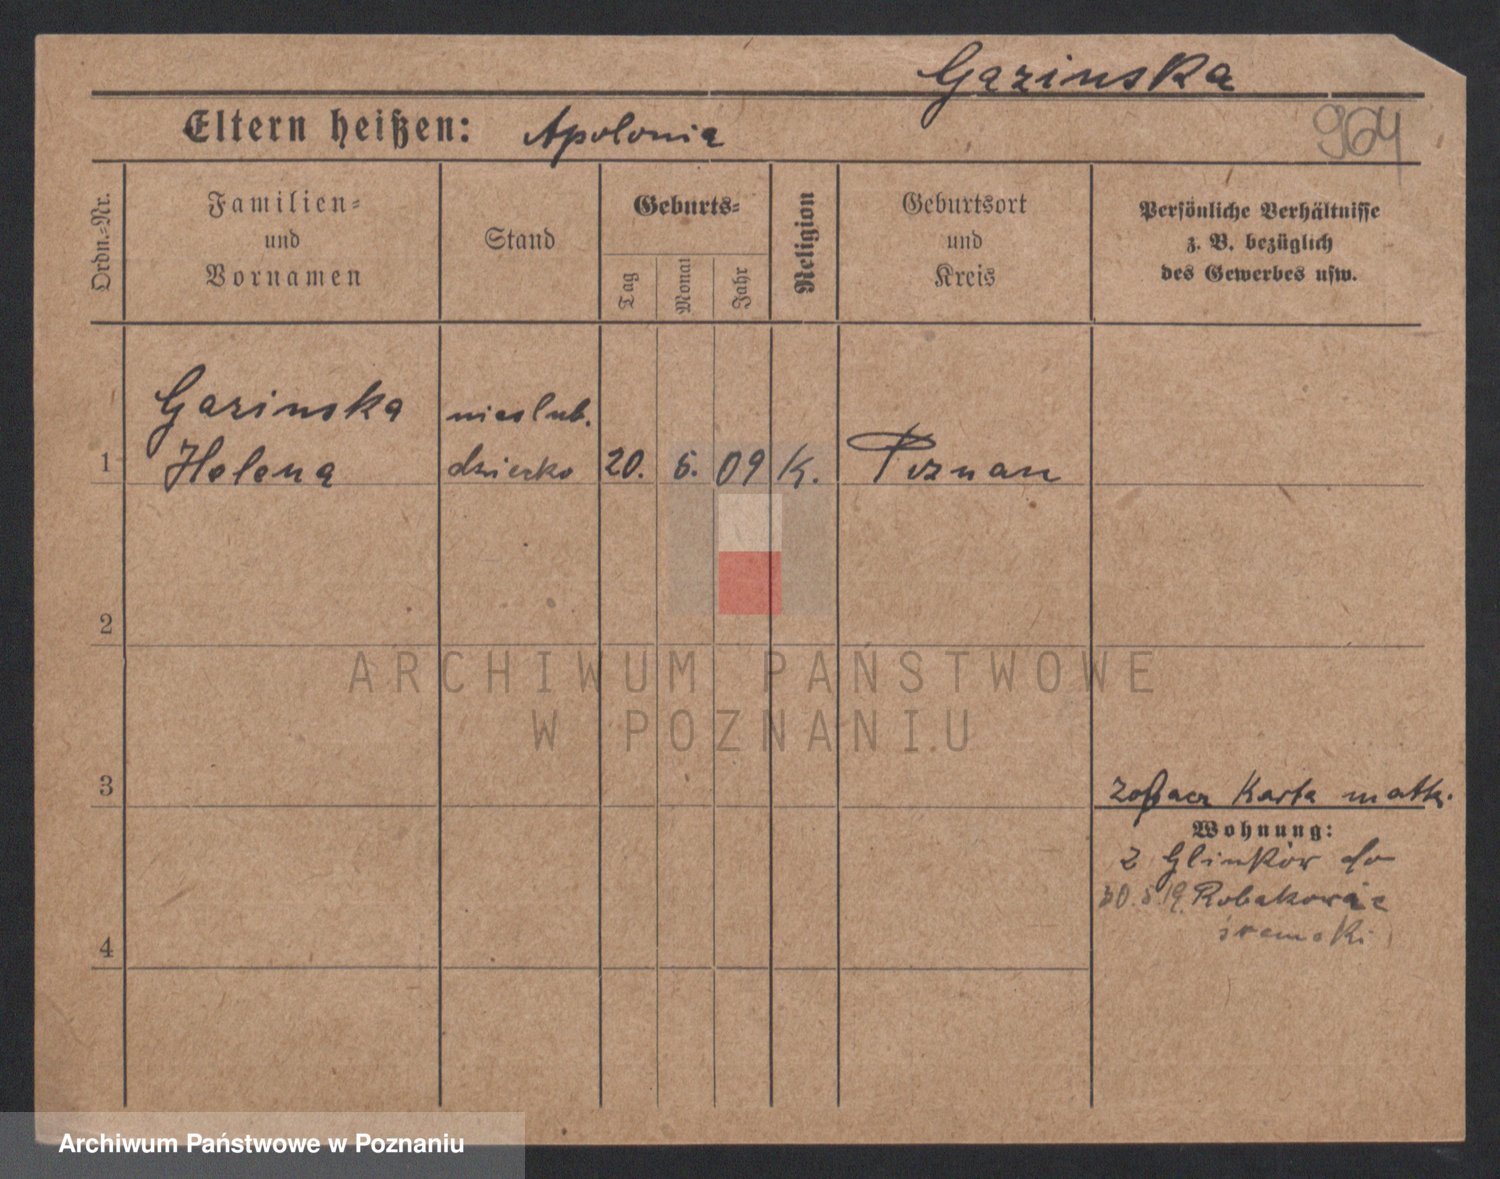 Gazinska
Eltern heißen: Apolonia
964
Ordn.=Nr.
Familien=
und
Vornamen
Stand
Geburts=
Tag
Monat
Jahr
Religion
Geburtsort
und
Kreis
Persönliche Verhältnisse
z. B. bezüglich
des Gewerbes usw.
Gazinska nieslub.
1 Helena dziecko 20. 6. 09 K. Poznan
2
ARCHIWUM PAŃSTWOWE
W POZNANIU
3
Zobacz Karta matki.
Wohnung:
z Glinków do
30.5.19. Robakowa
śremski
4
Archiwum Państwowe w Poznaniu